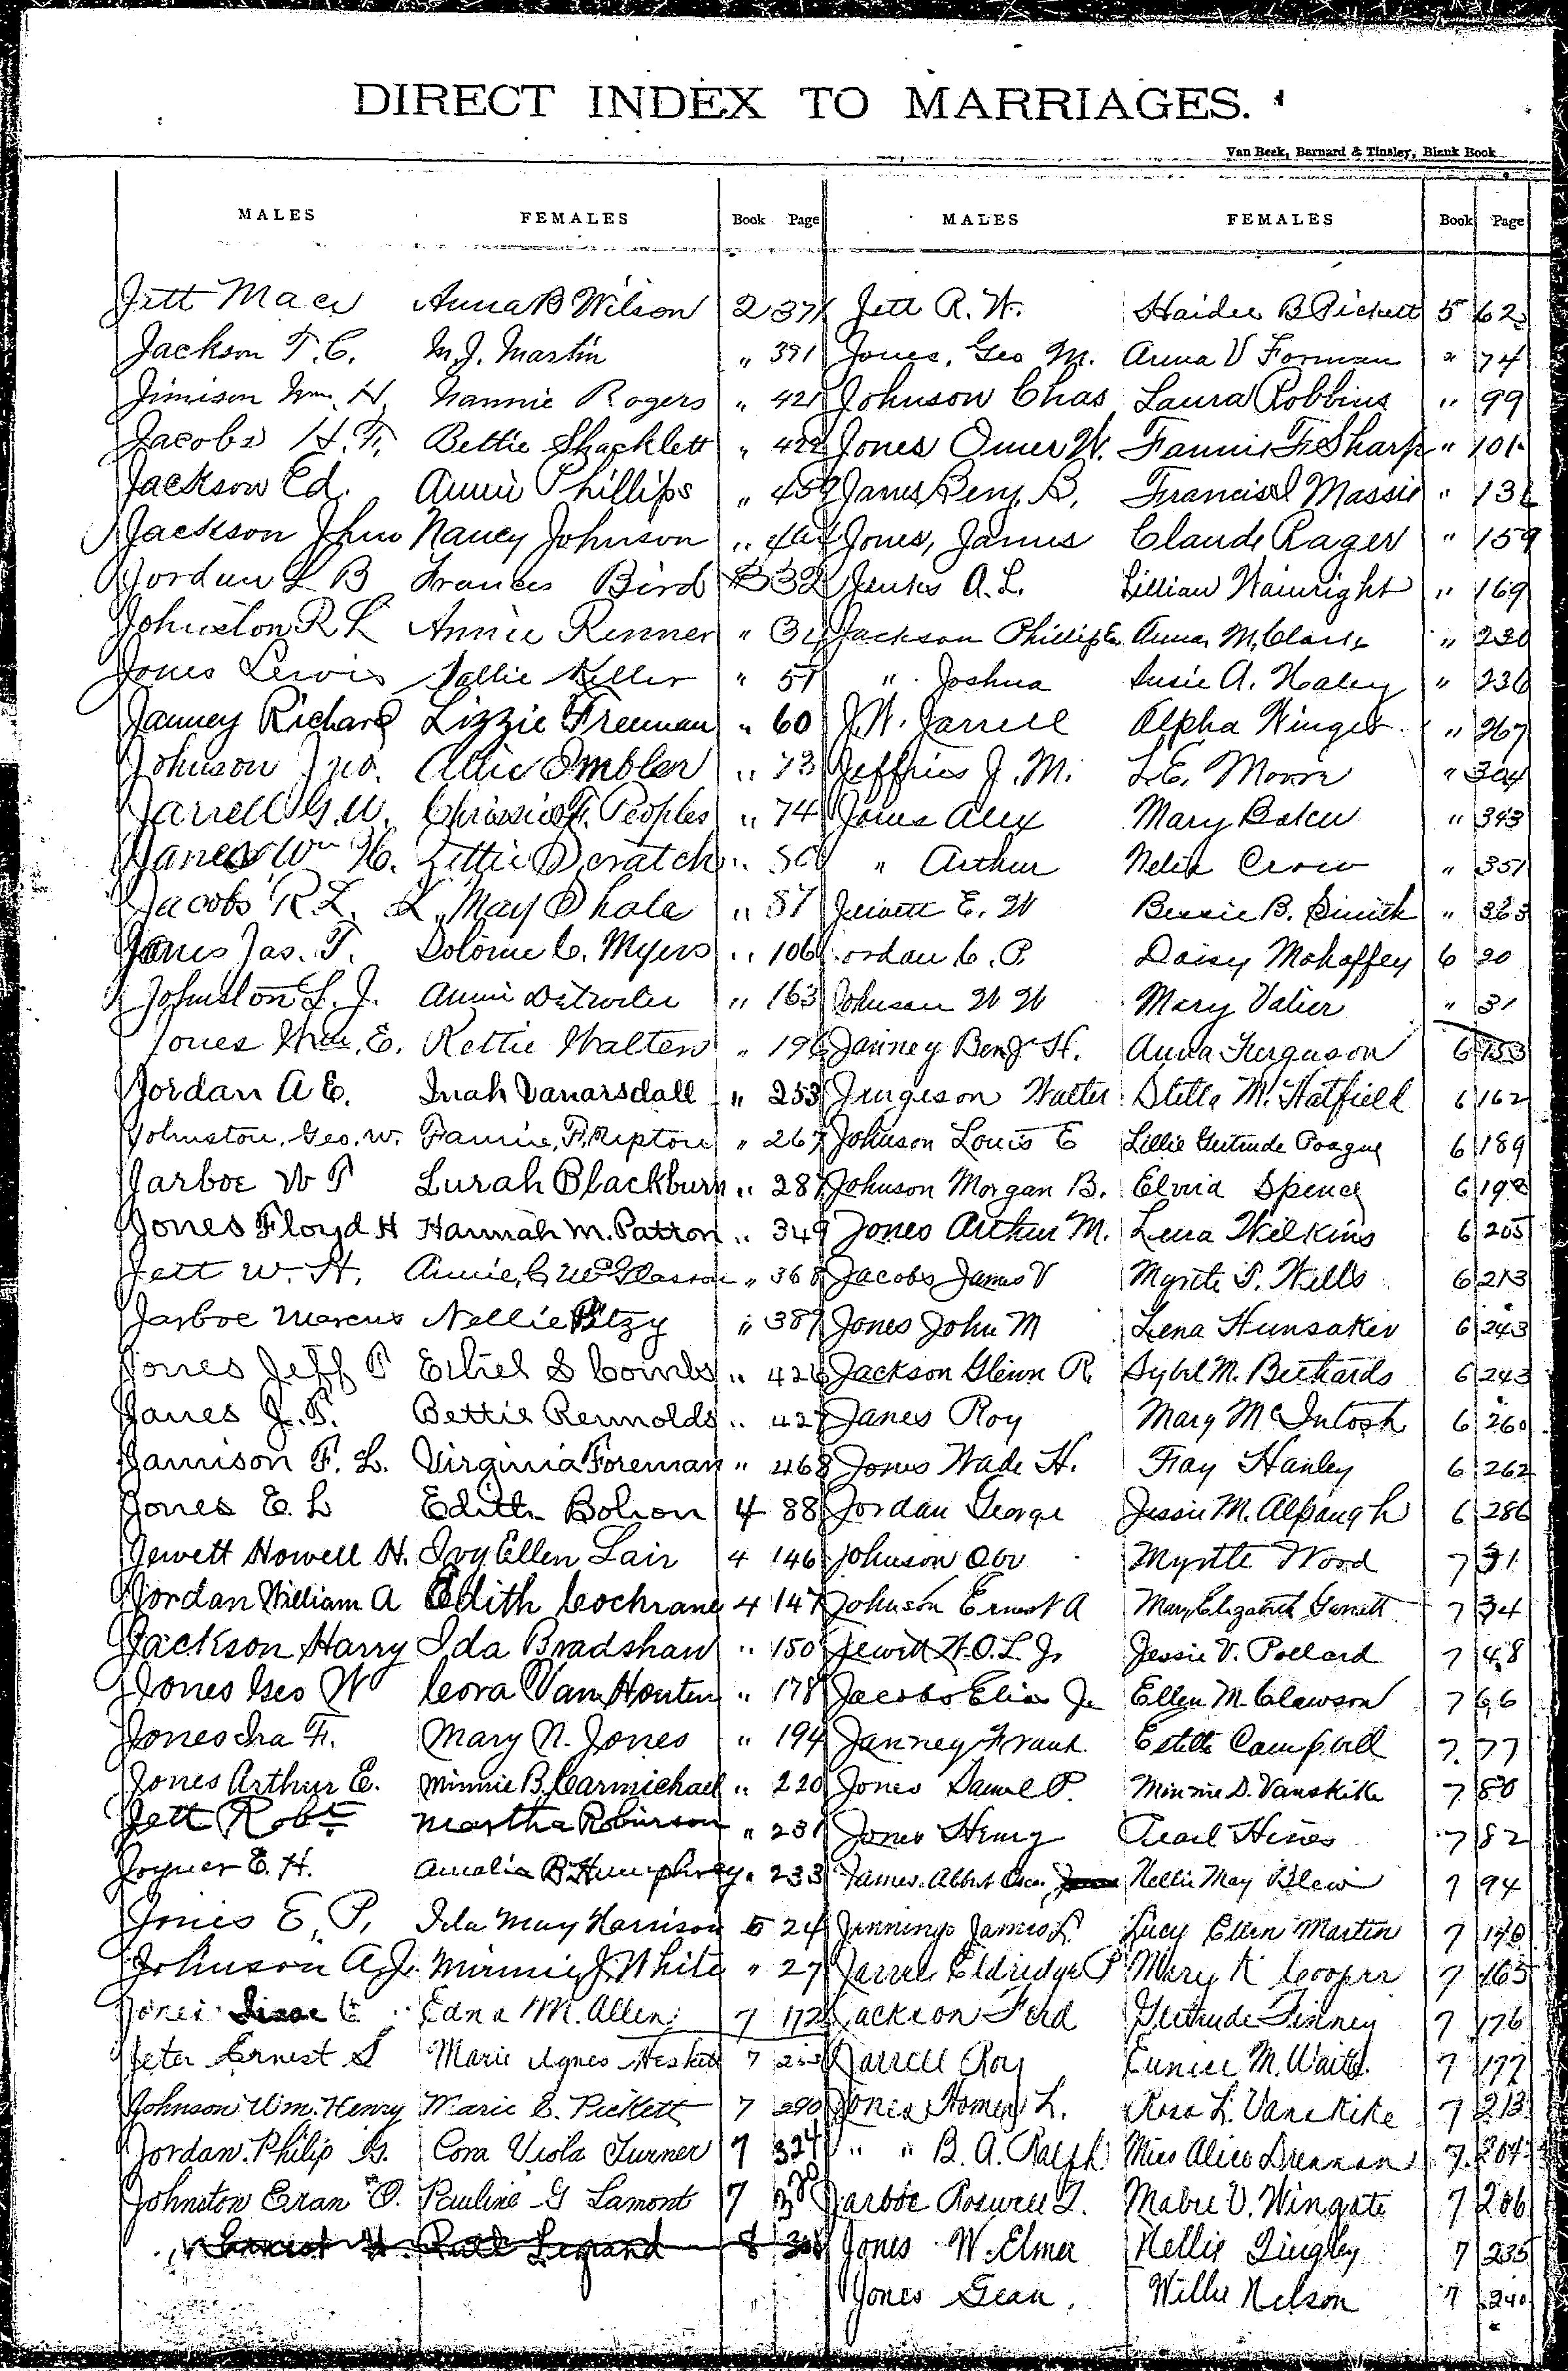 DIRECT INDEX TO MARRIAGES.
Van Beek, Barnard & Tinsley, Blank Book
MALES FEMALES Book Page MALES FEMALES Book Page
Jett Mace Anna B Wilson 2 371 Jett R. W. Haidee B Pickett 5 62
Jackson T. C. M. J. Martin " 391 Jones, Geo M. Anna V Forman " 74
Jimison Wm. H. Nannie Rogers " 421 Johnson Chas Laura Robbins " 99
Jacobs H. T. Bettie Shacklett " 422 Jones Omer W. Fannie F. Sharp " 101
Jackson Ed. Annie Phillips " 459 Janes Benj. B. Massie " 136
Jackson Jhno Nancy Johnson " 464 Jones, James Claude Rager " 159
Jordan L B Frances Bird 3 32 Jenks A. L. Lillian Wainright " 169
Johnston R L Annie Renner " 34 Jackson Phillip Anna M. Clark " 230
Jones Lewis Sallie Keller " 51 " Joshua Susie A. Haley " 236
Janney Richard Lizzie Freeman " 60 J. W. Jarrell Alpha Winget " 267
Johnson Jno. Allie Imbler " 73 Jeffries J. M. L. E. Moore " 304
Jarrell G. W. Chrissie F. Peoples " 74 Jones Alex Mary Baker " 343
Janes Wm H. Lettie Scratch " 80 " Arthur Nelia Crow " 351
Jacobs R. L. L. May Shale " 87 Jewett E. W Bessie B. Smith " 363
Janes Jas. T. Solomie C. Myers " 106 Jordan C. P. Daisy Mahaffey 6 20
Johnston L. J. Annie Detwiler " 163 Johnson W W Mary Valier " 31
Jones Wm. E. Rettie Walten " 196 Janney Benj H. Anna Ferguson 6 153
Jordan A E. Inah Vanarsdall " 253 Jurgeson Walter Stella M. Hatfield 6 162
Johnston, Geo. W. Fannie, F. Upton " 267 Johnson Louis E Lillie Gertrude Poague 6 189
Jarboe W T Lurah Blackburn " 287 Johnson Morgan B. Elvira Spence 6 198
Jones Floyd H Hannah M. Patton " 349 Jones Arthur M. Lena Wilkins 6 205
Jett W. H. Annie, C McGlasson " 368 Jacobs James V Myrtle T. Wells 6 213
Jarboe Marcus Nellie Utzy " 389 Jones John M Lena Hunsaker 6 243
Jones Jeff T Ethel S Combs " 426 Jackson Glenn R. Sybil M. Richards 6 243
Janes J. T. Bettie Rennolds " 427 Janes Roy Mary McIntosh 6 260
Jamison F. L. Virginia Foreman " 468 Jones Wade H. Fray Hanley 6 262
Jones E. L Edith Bolion 4 88 Jordan George Jessie M. Alpaugh 6 286
Jewett Howell H. Ivy Ellen Lair 4 146 Johnson Obv Myrtle Wood 7 31
Jordan William A Edith Cochrane 4 147 Johnson Ernest A Mary Elizabeth Garnett 7 34
Jackson Harry Ida Bradshaw " 150 Jewett W. O. L. Jr Jessie V. Pollard 7 48
Jones Geo W Cora Van Houten " 178 Jacobs Elias Jr Ellen M Clawson 7 66
Jones Ira F. Mary N. Jones " 194 Janney Frank Estelle Campbell 7 77
Jones Arthur E. Minnie B. Carmichael " 220 Jones Daniel P. Minnie D. Vanskike 7 80
Jett Robt Martha Robinson " 231 Jones Henry Pearl Hines 7 82
Joyner E. H. Amalia B. Humphrey " 233 James Albert Oscar Nellie May Blew 7 94
Jones E. P. Ida May Harrison 5 24 Jennings James L Lucy Ellen Martin 7 140
Johnson A. J. Minnie J. White " 27 Jarrell Eldridge P Mary K Cooper 7 165
Jones Isaac C Edna M. Allen 7 172 Jackson Ferd Gertrude Finney 7 176
Jeter Ernest S Marie Agnes Heskett 7 Jarrell Roy Eunice M. Waits 7 177
Johnson Wm. Henry Marie E. Pickett 7 290 Jones Homer L. Rosa L. Vanskike 7 213
Jordan. Philip G. Cora Viola Turner 7 324 " " B. A. Ralph Miss Alice Drennan 7 204
Johnston Evan O. Pauline G Lamont 7 Jarboe Roswell T. Mabel V. Wingate 7 206
" Earnest H. Legrand 8 Jones W. Elmer Nellie Tingley 7 235
Jones Gean. Willie Nelson 7 240